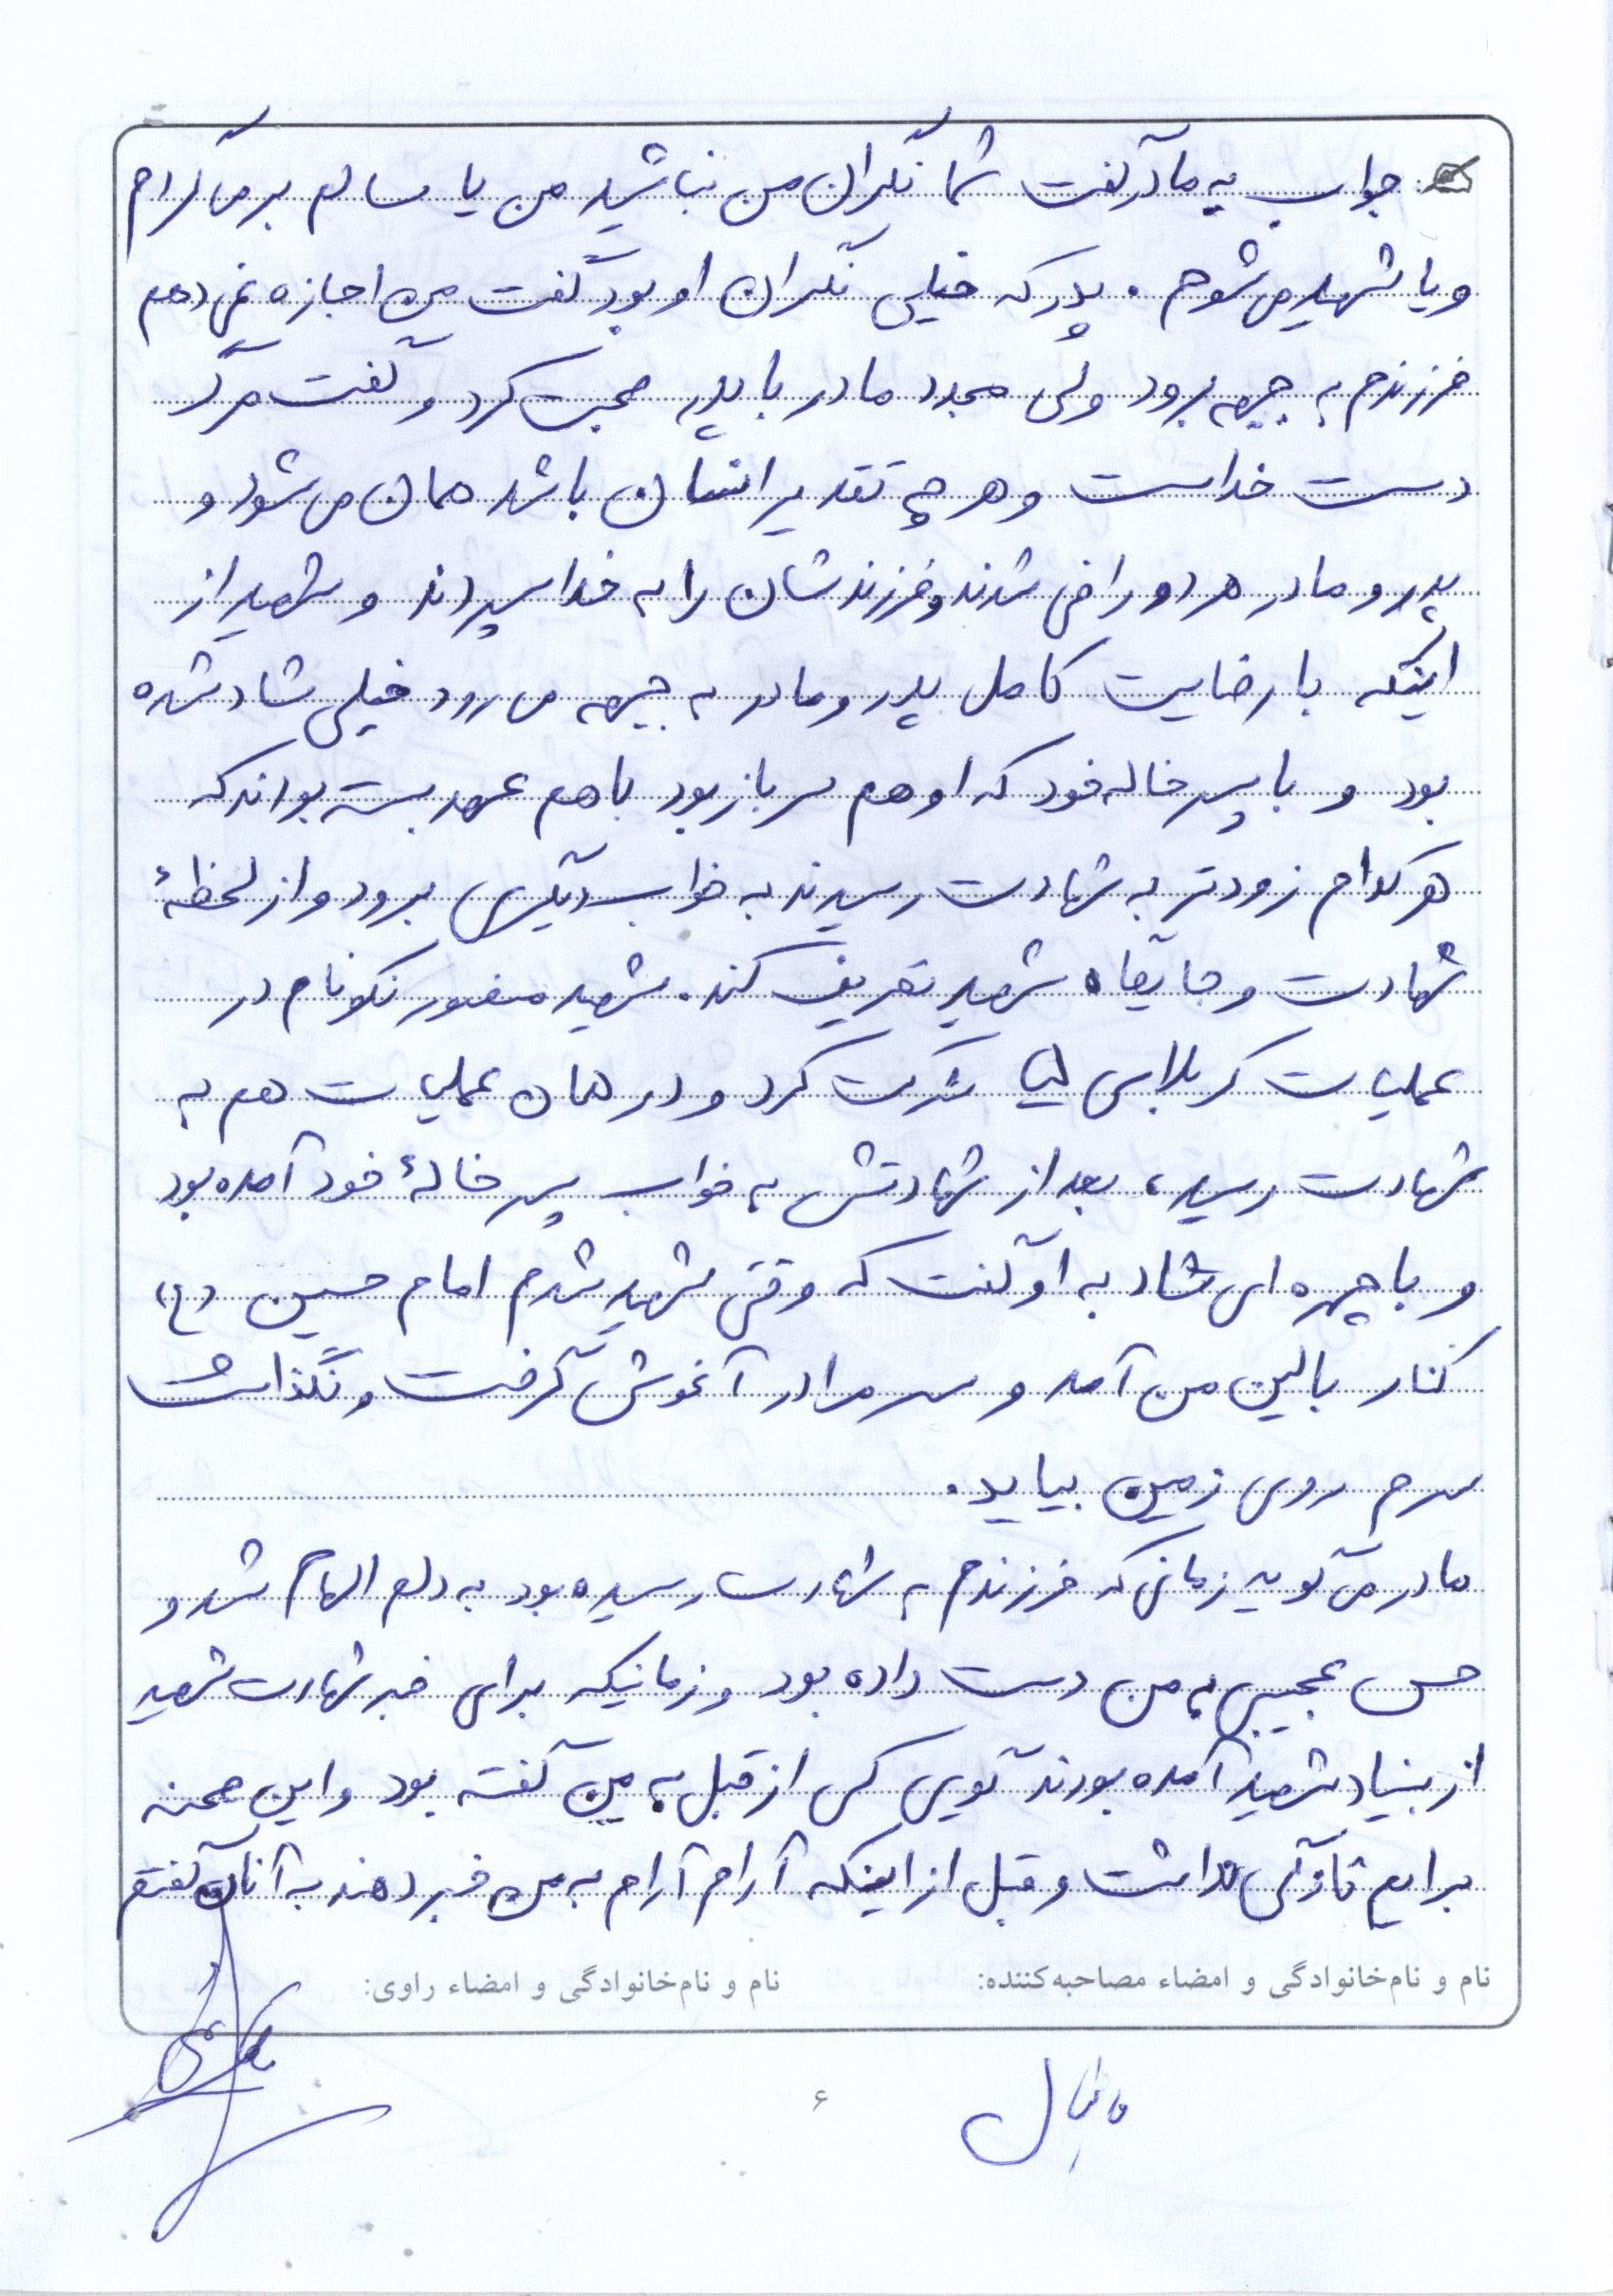 جواب به مادر گفت شما نگران من نباشید من یا سالم برمی‌گردم
و یا شهید می‌شوم . پدر که خیلی نگران او بود گفت من اجازه نمی‌دهم
فرزندم به جبهه برود ولی مجدد مادر با پدر صحبت کرد و گفت مرگ
دست خداست و هر چه تقدیر انسان باشد همان می‌شود و
پدر و مادر هر دو راضی شدند و فرزندشان را به خدا سپردند و شهید از
اینکه با رضایت کامل پدر و مادر به جبهه می‌رود خیلی شاد شده
بود و با پسرخاله خود که او هم سرباز بود با هم عهد بسته بودند که
هر کدام زودتر به شهادت رسیدند به خواب دیگری برود و از لحظهٔ
شهادت و جایگاه شهید تعریف کند . شهید منصور نکونام در
عملیات کربلای شرکت کرد و در همان عملیات هم به
شهادت رسید ، بعد از شهادتش به خواب پسر خالهٔ خود آمده بود
و با چهره‌ای شاد به او گفت که وقتی شهید شدم امام حسین (ع)
کنار بالین من آمد و سر مرا در آغوش گرفت و نگذاشت
سرم روی زمین بیاید .
مادر می‌گوید زمانی که فرزندم به شهادت رسیده بود به دلم الهام شد و
حس عجیبی به من دست داده بود و زمانیکه برای خبر شهادت شهید
از بنیاد شهید آمده بودند گویی کسی از قبل به من گفته بود و این صحنه
برایم تازگی نداشت و قبل از اینکه آرام آرام به من خبر دهند به آنان گفتم
نام و نام‌خانوادگی و امضاء مصاحبه‌کننده: نام و نام‌خانوادگی و امضاء راوی:
۶